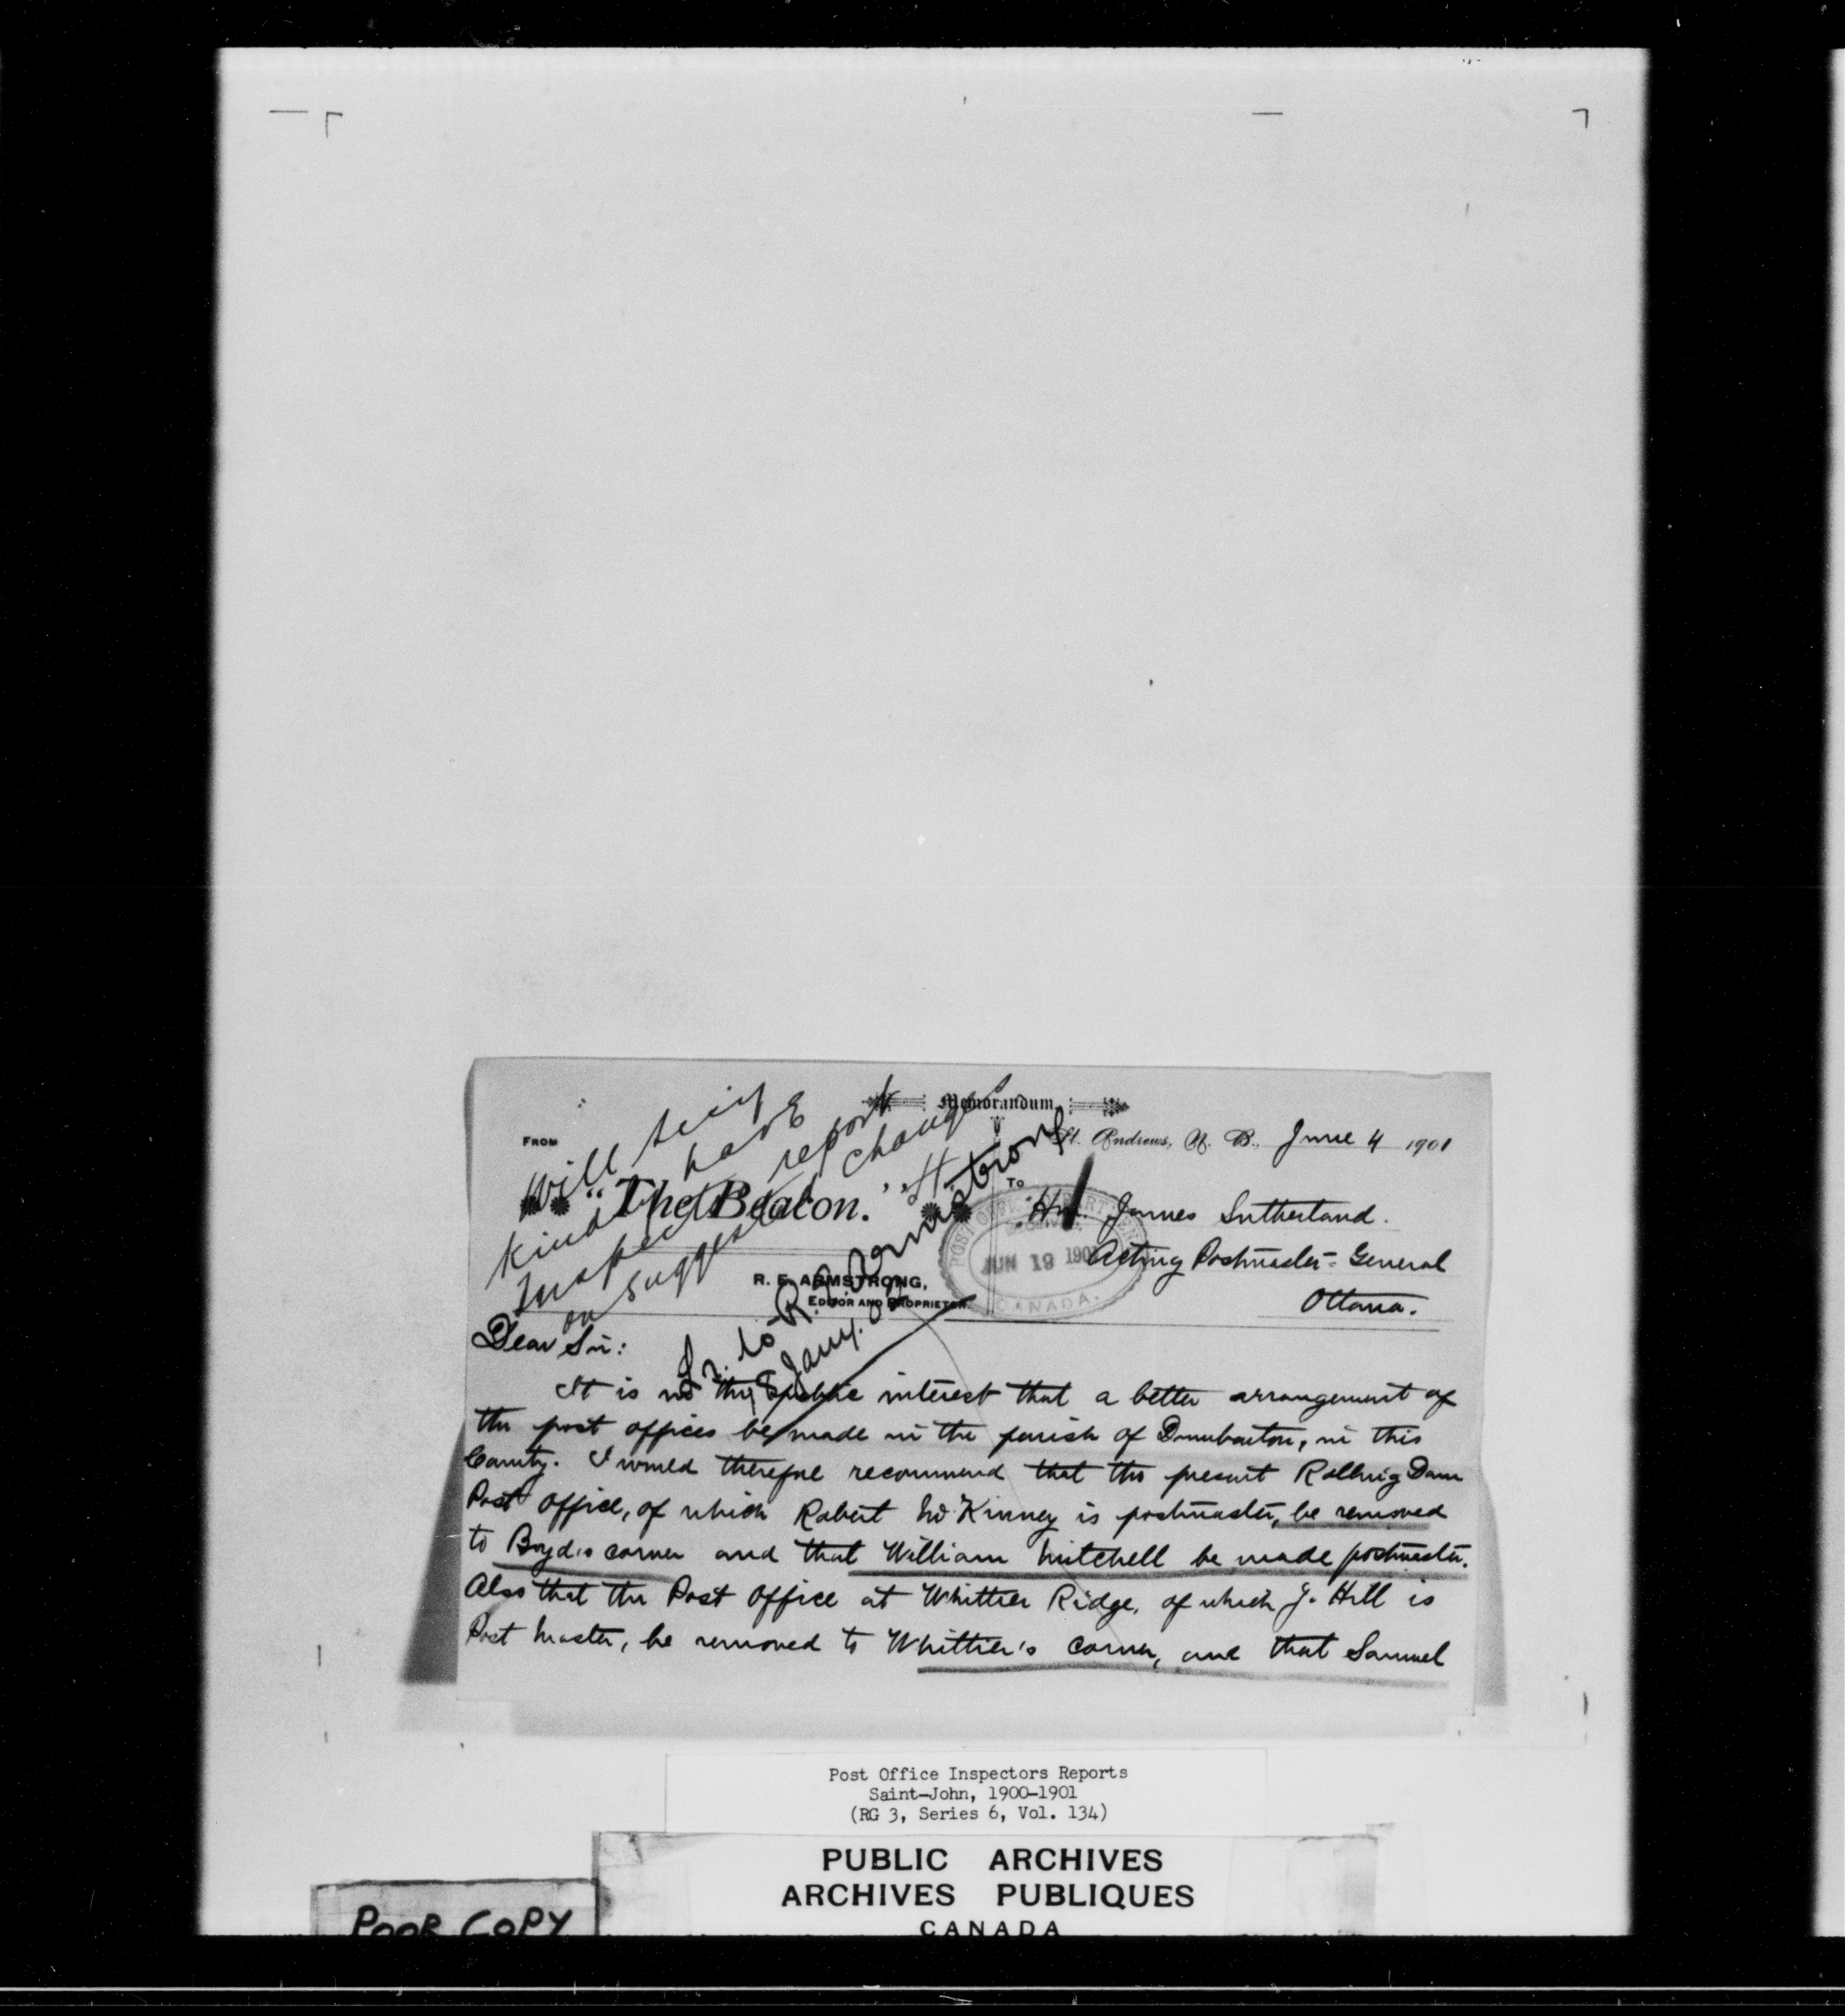 Memorandum.
FROM
St. Andrews, N. B., June 4 1901
Will Suif
Kindly have
Inspector report
on suggested change
"The Beacon."
TO
Hon. James Sutherland.
Acting Postmaster-General
Ottawa.
POST OFFICE DEPARTMENT
JUN 19 1901
CANADA.
R. E. ARMSTRONG,
EDITOR AND PROPRIETOR.
to R. E. Armstrong
Jany. 02
Dear Sir:
It is in the public interest that a better arrangement of
the post offices be made in the parish of Dumbarton, in this
County. I would therefore recommend that the present Rolling Dam
Post Office, of which Robert McKinney is postmaster, be removed
to Boyd's corner and that William Mitchell be made postmaster.
Also that the Post Office at Whittier Ridge, of which J. Hill is
Post Master, be removed to Whittier's Corner, and that Samuel
Post Office Inspectors Reports
Saint-John, 1900-1901
(RG 3, Series 6, Vol. 134)
PUBLIC ARCHIVES
ARCHIVES PUBLIQUES
CANADA
POOR COPY